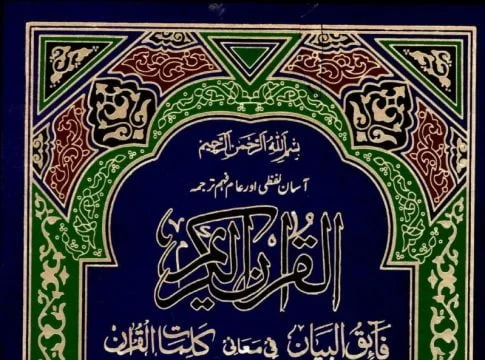 بسم الله الرحمن الرحيم
آسان لفظی اور عام فہم ترجمہ
القرآن الکریم
فائق البیان فی معانی کلمات القرآن